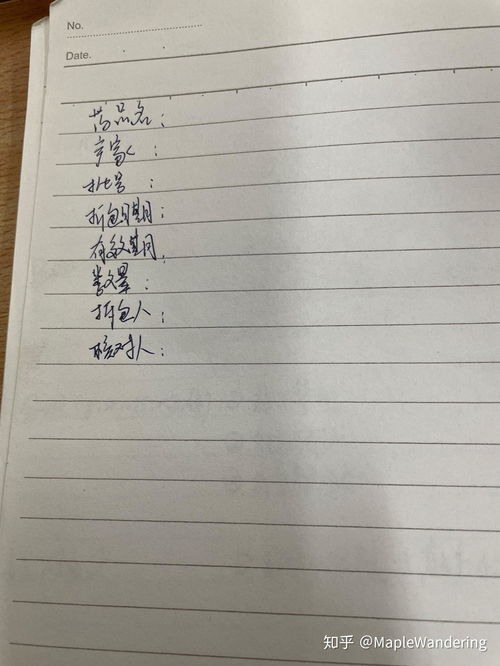 No.
Date.
药品名：
厂家：
批号：
拆包日期：
有效期：
数量：
拆包人：
核对人：
知乎 @MapleWandering